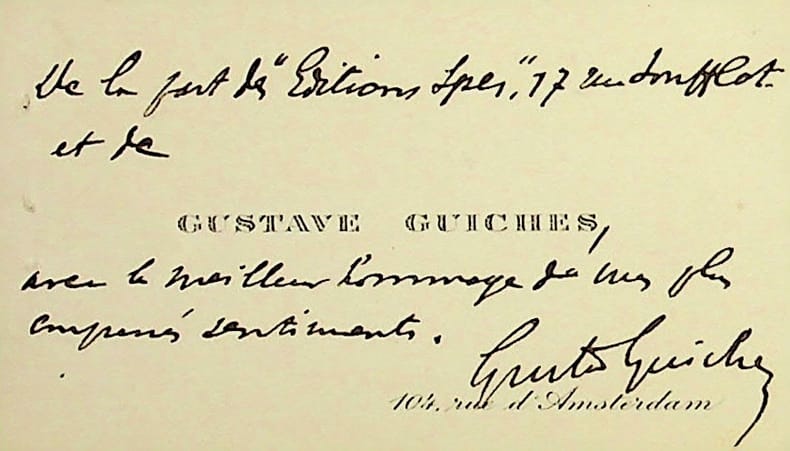 De la part des "Editions Spes", 17 rue Soufflot.
et de
GUSTAVE GUICHES,
avec le meilleur hommage de mes plus
empressés sentiments.
Gustave Guiches
104, rue d'Amsterdam